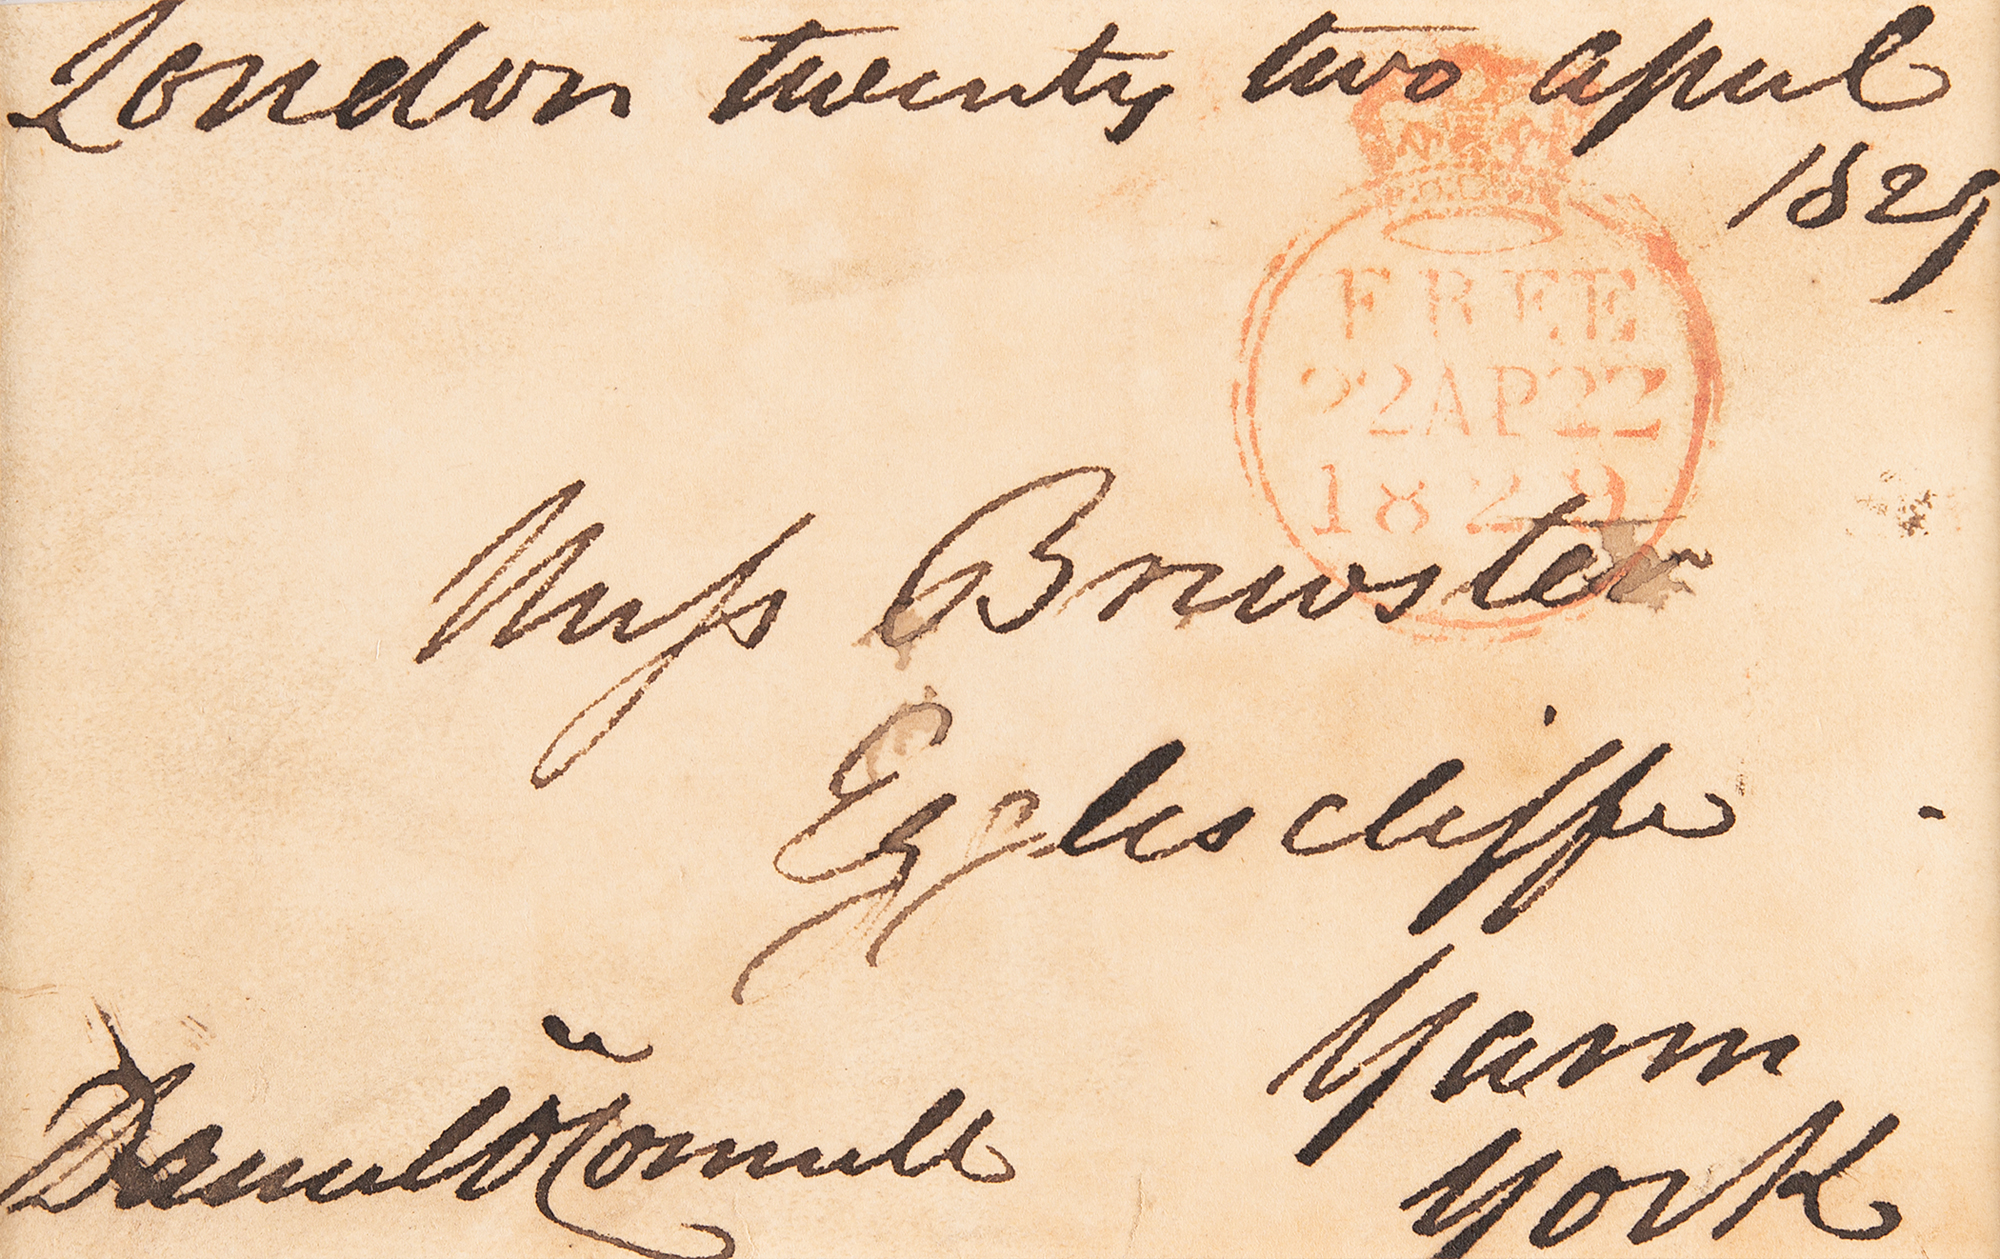 London twenty two april
1829
FREE
22AP22
1829
Miss Brewster
Egglescliffe
Yarm
York
Daniel O'Connell